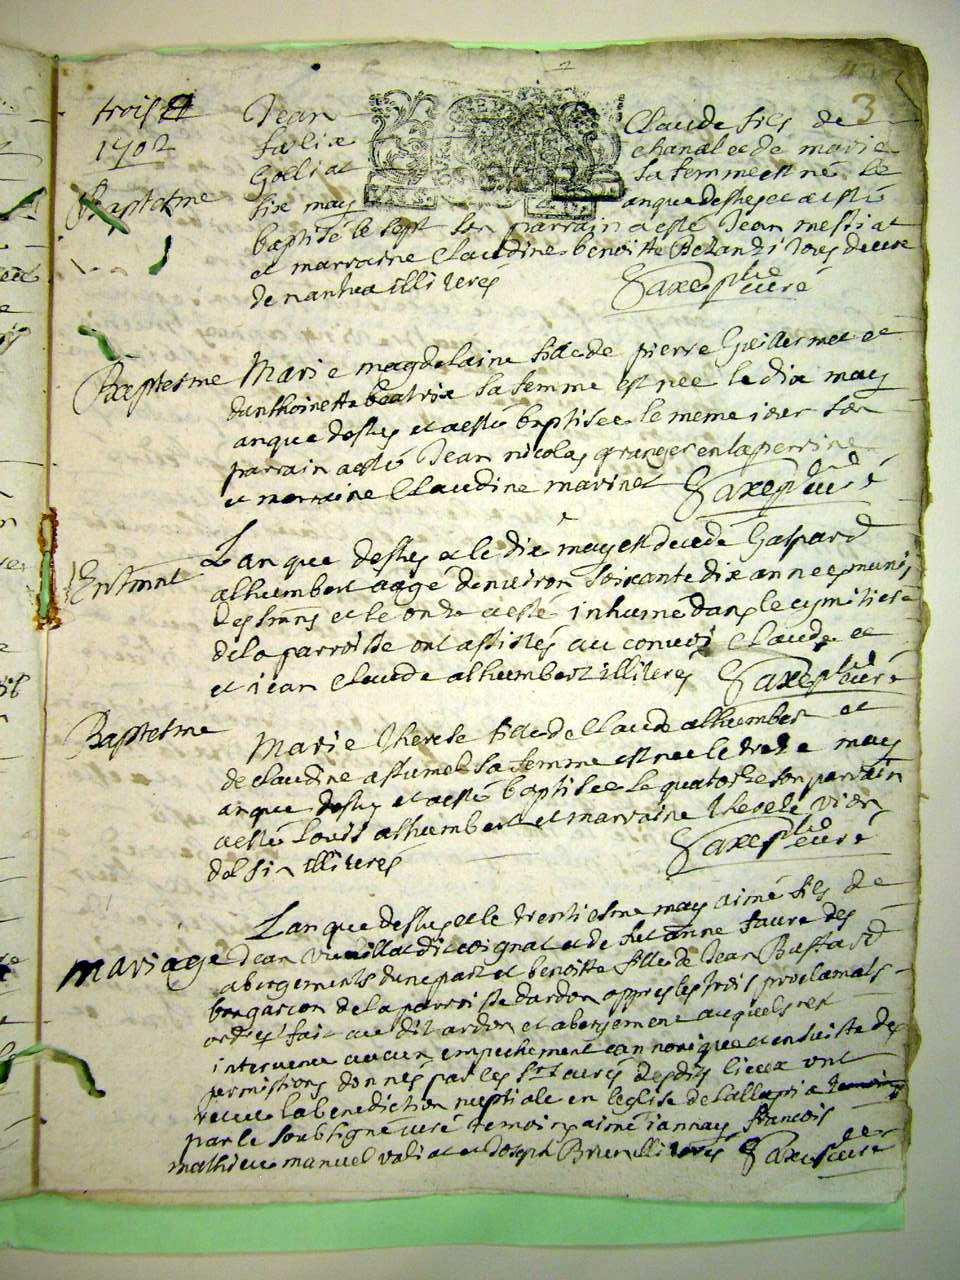 3
trois
1702
Baptesme
Jean Claude fils de
chanal et de marie
Golliat sa femme est né le
six may an que dessus et a esté
baptisé le sept son parrain a esté Jean mestiat
et marraine Claudine benoitte
de nantua illiterés
Saxe curé
Baptesme Marie magdelaine fille de pierre Guillermet et
danthoinette beatrix sa femme est nee le dix may
an que dessus et a esté baptisee le meme iour son
parrain a esté Jean nicolas granger en la perrine
et marraine Claudine marinet Saxe curé
Lan que dessus et le dix may est decedé Gaspard
alhumbert aagé denviron soixante dix annees munis
des srmns et le onze a esté inhumé dans le cymitiere
de la parroisse ont assistés au convoi Claude et
et iean Claude alhumbert illiterés Saxe curé
Baptesme
Marie Therese fille de Claude alhumbert et
de claudine sa femme est nee le treize may
an que dessus et a esté baptisee le quatorze son parrain
a esté Louis alhumbert et marraine Therese
illiterés Saxe curé
Lan que dessus et le trentiesme may aimé fils de
mariage Jean dit coignat et de fut anne faure des
abergements dune part et benoitte fille de Jean Bastard
de la parroisse dardon appres les trois proclamats
fait au dit ardon et abergement auquels nest
intervenu aucun empechement cannonique et ensuitte des
permissions donnés par les srs curés desdits lieux ont
receu la benediction nuptiale en leglise de Lallayria
par le soubsigné curé temoins aimé iannay francois
mathieu manuel et Joseph Brun illiterés Saxe curé